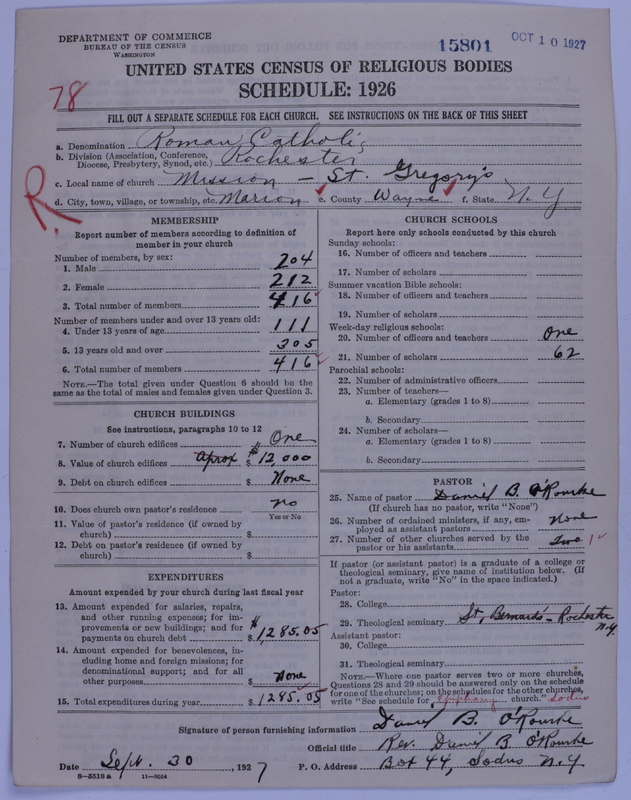 DEPARTMENT OF COMMERCE
BUREAU OF THE CENSUS
WASHINGTON
15801
OCT 10 1927
UNITED STATES CENSUS OF RELIGIOUS BODIES
SCHEDULE: 1926
78
FILL OUT A SEPARATE SCHEDULE FOR EACH CHURCH. SEE INSTRUCTIONS ON THE BACK OF THIS SHEET
R.
a. Denomination Roman Catholic
b. Division (Association, Conference, Diocese, Presbytery, Synod, etc.) Rochester
c. Local name of church Mission — St. Gregory's
d. City, town, village, or township, etc. Marion e. County Wayne f. State N.Y.
MEMBERSHIP
Report number of members according to definition of
member in your church
Number of members, by sex:
1. Male 204
2. Female 212
3. Total number of members 416
Number of members under and over 13 years old:
4. Under 13 years of age 111
5. 13 years old and over 305
6. Total number of members 416
NOTE.—The total given under Question 6 should be
same as the total of males and females given under Question 3.
CHURCH BUILDINGS
See instructions, paragraphs 10 to 12
7. Number of church edifices One
8. Value of church edifices Aprox $ $12,000
9. Debt on church edifices $ None
10. Does church own pastor's residence no
Yes or No
11. Value of pastor's residence (if owned by
church) $
12. Debt on pastor's residence (if owned by
church) $
EXPENDITURES
Amount expended by your church during last fiscal year
13. Amount expended for salaries, repairs,
and other running expenses; for im-
provements or new buildings; and for
payments on church debt $ $1,285.05
14. Amount expended for benevolences, in-
cluding home and foreign missions; for
denominational support; and for all
other purposes $ None
15. Total expenditures during year $ 1285.05
CHURCH SCHOOLS
Report here only schools conducted by this church
Sunday schools:
16. Number of officers and teachers
17. Number of scholars
Summer vacation Bible schools:
18. Number of officers and teachers
19. Number of scholars
Week-day religious schools:
20. Number of officers and teachers One
21. Number of scholars 62
Parochial schools:
22. Number of administrative officers
23. Number of teachers—
a. Elementary (grades 1 to 8)
b. Secondary
24. Number of scholars—
a. Elementary (grades 1 to 8)
b. Secondary
PASTOR
25. Name of pastor Daniel B. O'Rourke
(If church has no pastor, write "None")
26. Number of ordained ministers, if any, em-
ployed as assistant pastors None
27. Number of other churches served by the
pastor or his assistants Two 1
If pastor (or assistant pastor) is a graduate of a college or
theological seminary, give name of institution below. (If
not a graduate, write "No" in the space indicated.)
Pastor:
28. College
29. Theological seminary St. Bernard's - Rochester N.Y.
Assistant pastor:
30. College
31. Theological seminary
NOTE.—Where one pastor serves two or more churches,
Questions 28 and 29 should be answered only on the schedule
for one of the churches; on the schedules for the other churches,
write "See schedule for Epiphany church." Sodus
Signature of person furnishing information Daniel B. O'Rourke
Official title Rev. Daniel B. O'Rourke
Date Sept. 30, 1927 P. O. Address Box 44, Sodus N.Y.
8—5518a 11—9024